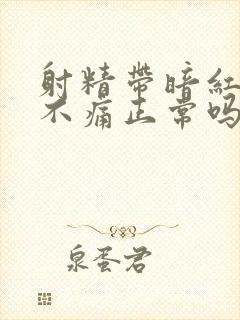 射精带暗红
不痛正常吗
泉蛋君